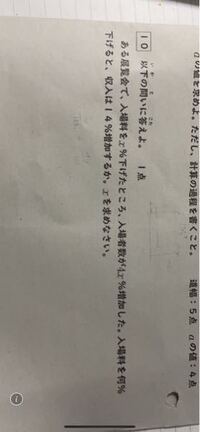 aの値を求めよ。ただし、計算の過程を書くこと。 道幅：5点 aの値：4点
10 以下の問いに答えよ。 1点
ある展覧会で、入場料をx%下げたところ、入場者数が4x%増加した。入場料を何%
下げると、収入は14%増加するか。xを求めなさい。